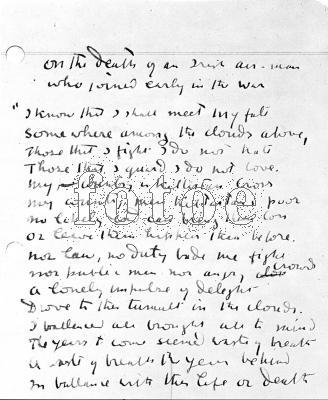 On the death of an Irish air-man
who joined early in the war
"I know that I shall meet my fate
Some where among the clouds above,
Those that I fight I do not hate
Those that I guard I do not love.
My country is Kiltartan Cross
My country men Kiltartan's poor
No likely end can bring loss
Or leave them happier than before.
Nor law, no duty bade me fight
Nor public men nor angry crowds
A lonely impulse of delight
Drove to this tumult in the clouds.
I ballanced all brought all to mind
The years to come seemed waste of breath
A waste of breath the years behind
In ballance with this life or death
fotobe